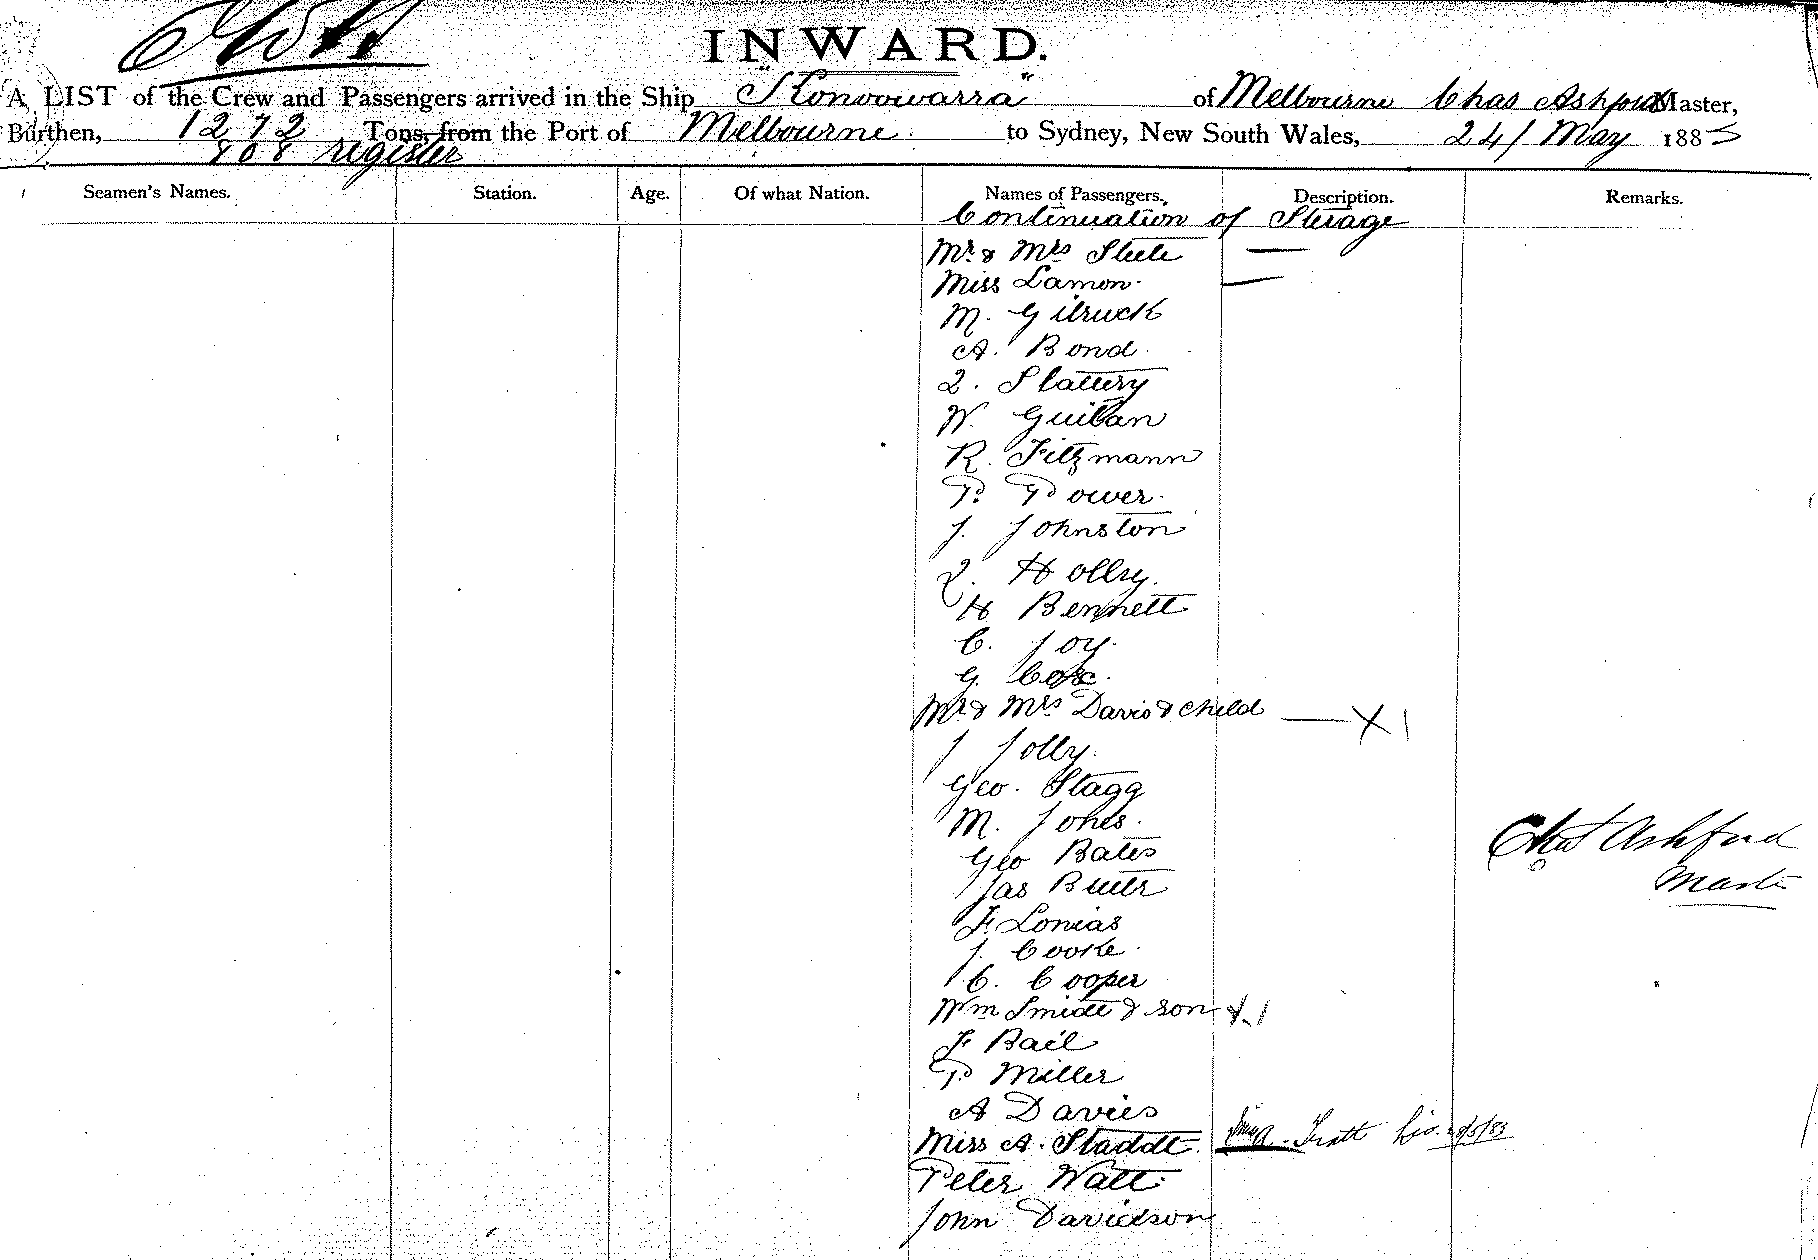 INWARD.
A LIST of the Crew and Passengers arrived in the Ship "Konoowarra" of Melbourne Chas Ashford Master,
Burthen, 1272 Tons, from the Port of Melbourne to Sydney, New South Wales, 24/ May 1883
808 register
Seamen's Names. Station. Age. Of what Nation. Names of Passengers. Description. Remarks.
Continuation of Sterage
Mr & Mrs Steele —
Miss Lamon —
M. Gilruck
A. Bond
Slattery
W. Guilan
R. Fitzmann
P. Power
J. Johnston
Holley
H Bennett
C. Joy
G. Cox
Mr & Mrs Davis & child — X 1
J Jolly
Geo. Stagg
M. Jones
Geo Bates
Chas Ashford
Jas Butler
Master
F. Lonias
J. Cooke
C. Cooper
Wm Smidt & son X 1
F Bail
P Miller
A Davies
Miss A. Staddt
Peter Watt
John Davidson